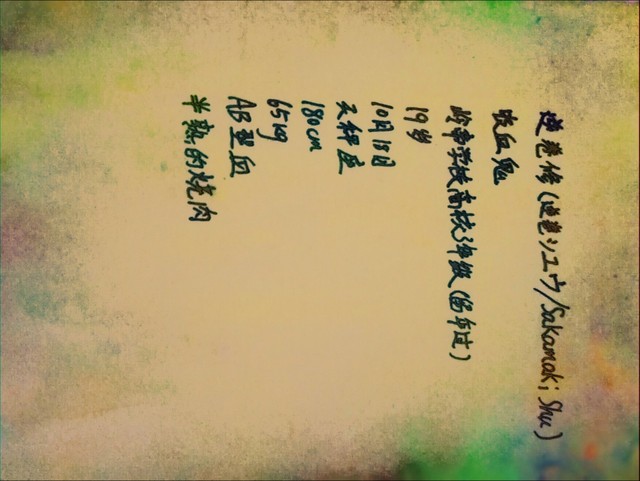 逆卷修(逆卷シュウ/Sakamaki Shu)
吸血鬼
岭帝学校高校3年级(留年过)
19岁
10月18日
天秤座
180cm
65kg
AB型血
半熟的烧肉